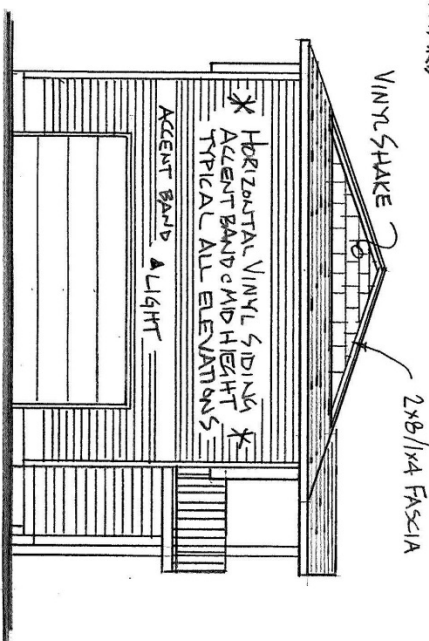 VINYL SHAKE
2x8/1x4 FASCIA
* HORIZONTAL VINYL SIDING *
ACCENT BAND @ MID HIEGHT
TYPICAL ALL ELEVATIONS
ACCENT BAND
LIGHT